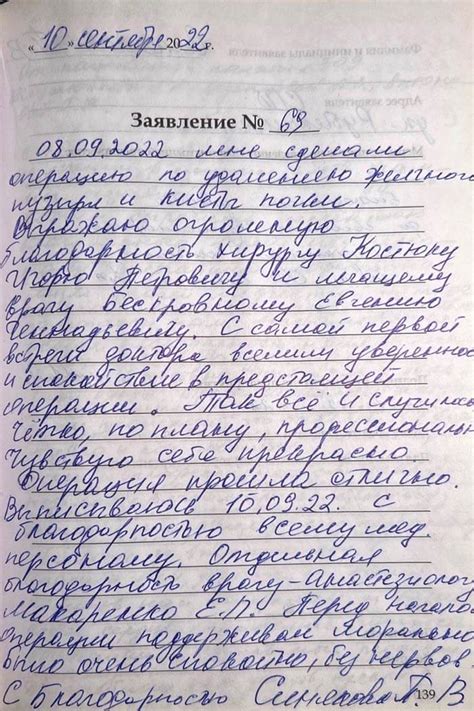 «10» сентября 2022 г.
Заявление № 69
08.09.2022 мне сделали
операцию по удалению желчного
пузыря и кисты почки.
Выражаю огромную
благодарность хирургу Костюку
Игорю Петровичу и лечащему
врагу бескровному Евгению
Геннадьевичу. С самой первой
встречи доктора вселили увереннос
и спокойствие в предстоящей
операции. Так всё и случилось
Чётко, по плану, профессиональн
Чувствую себя прекрасно.
Операция прошла отлично.
Выписываюсь 10.09.22. С
благодарностью всему мед.
персоналу. Отдельная
благодарность врачу-анастезиологу
Макаренко Е.П. Перед начало
операции поддерживал морально
было очень спокойно, без нервов
С благодарностью В
139